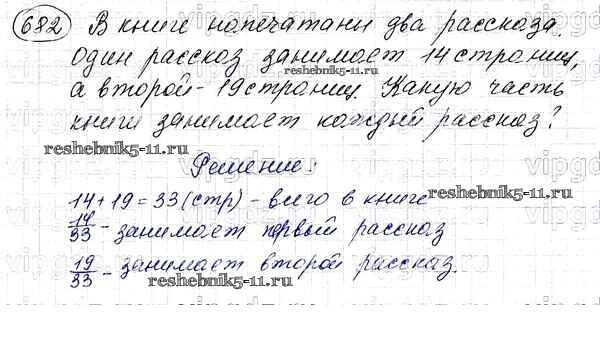 682 В книге напечатаны два рассказа.
Один рассказ занимает 14 страниц,
reshebnik5-11.ru
а второй - 19 страниц. Какую часть
книги занимает каждый рассказ?
reshebnik5-11.ru
Решение:
14 + 19 = 33 (стр) - всего в книге
reshebnik5-11.ru
14/33 - занимает первый рассказ
19/33 - занимает второй рассказ.
reshebnik5-11.ru